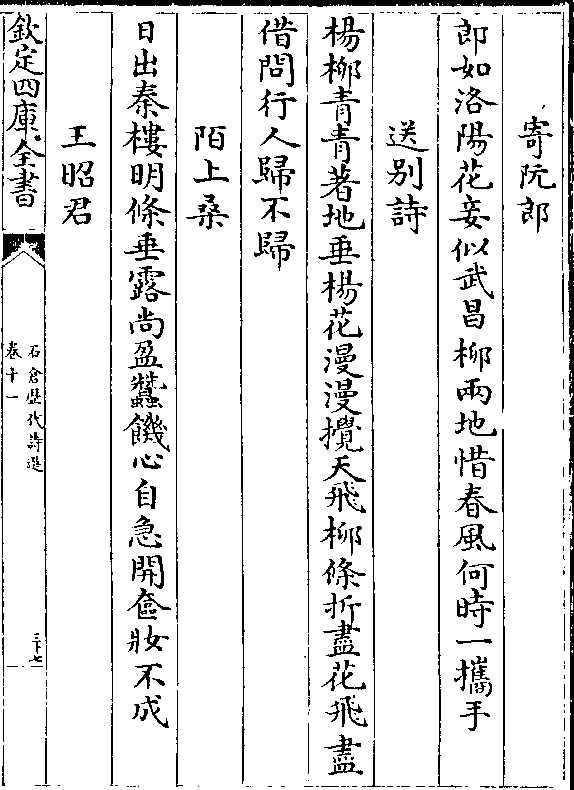 寄阮郎
郎如洛陽花妾似武昌柳兩地惜春風何時一攜手
送别詩
楊柳青青著地垂楊花漫漫攪天飛柳條折盡花飛盡
借問行人歸不歸
陌上桑
日出秦樓明條垂露尚盈蠶饑心自急開奩妝不成
王昭君
欽定四庫全書
石倉歷代詩選
卷十一
三十七